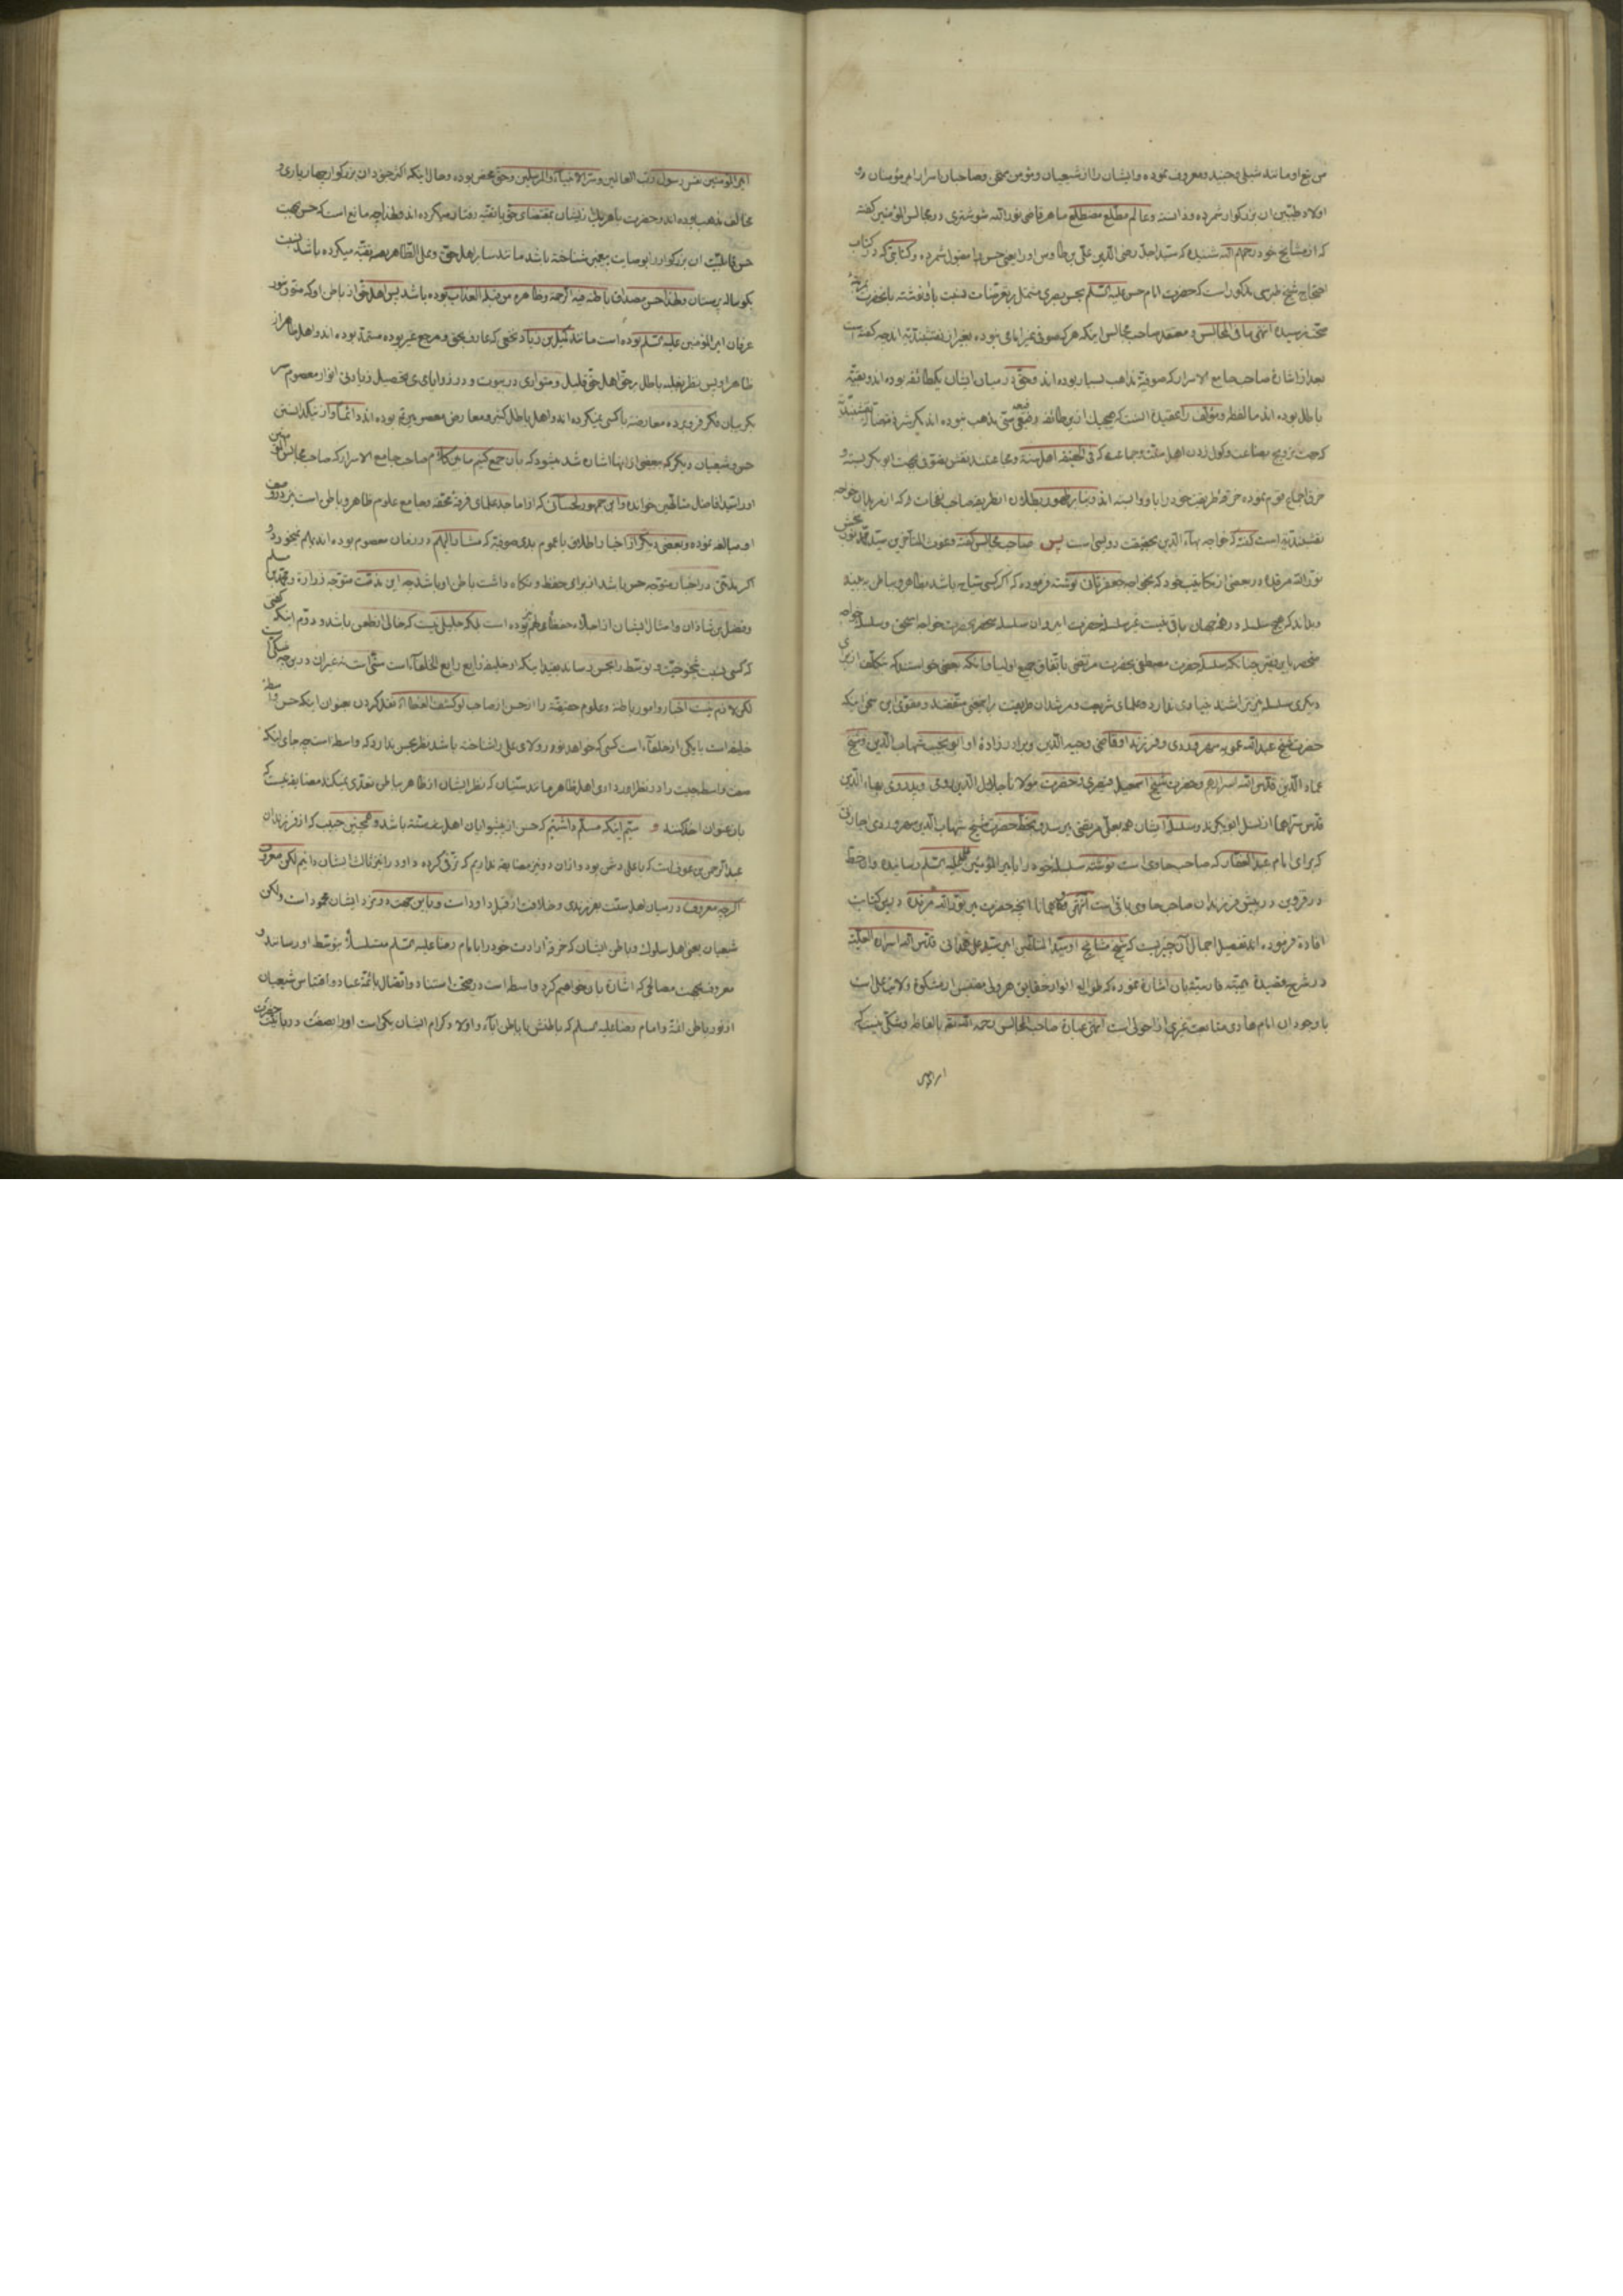 من تبع او مانند شبلی و جنید و معروف نموده و ایشان را از شیعیان و مؤمن ممتحن و صاحبان اسرار امیر مؤمنان و
اولاد طیبین آن بزرگوار شمرده و دانسته و عالم مطلع مضطلع ماهر قاضی نورالله شوشتری در مجالس المؤمنین گفته
که از مشایخ خود رحمهم الله شنیده که سید اجل رضی الدین علی بن طاوس او را یعنی حسن را مقبول شمرده و کتابتی که در کتاب
احتجاج شیخ طبرسی مذکور است که حضرت امام حسن علیه السلم بحسن بصری مشتمل بر تعرضات نسبت باو نوشته بانحضرت
صحت نرسیده انتهی ما فی المجالس و معتقد صاحب مجالس اینکه هرگز صوفی غیر امامی نبوده بغیر از نقشبندیه
بعد از اشارهٔ صاحب جامع الاسرار که صوفیه مذاهب بسیار بوده اند و حق در میان ایشان یکطائفه بوده اند و بقیه
باطل بوده اند ما لفظه و مؤلف را عقیده آنست که هیچیک از این طائفه رفیعه سنی مذهب نبوده اند مگر شرذمه نقشبندیه
که جهت ترویج بضاعت و گول زدن اهل سنت و جماعت
خرق اجماع قوم نموده خرقهٔ طریقت خود را باو وابسته اند و بنا بر ظهور بطلان انظریفه صاحب نفحات که از مریدان خواجه
نقشبندیه است گفته که خواجه بهاء الدین بحقیقت اویسی است پس صاحب مجالس گفته و غوث المتأخرین سید محمد نوربخش
نورالله مرقده در بعضی از مکاتیب خود که بخواجه جعفر نوشته فرموده که اگر کسی سیاح باشد بظاهر و باطن ببیند
و بداند که هیچ سلسله در همهٔ جهان باقی نیست غیر سلسلهٔ حضرت امیر و ان سلسله منحصر بحضرت خواجه اسحق و سلسلهٔ خواجه
منحصر باین فقیر چنانکه سلسلهٔ حضرت مصطفی بحضرت مرتضی باتفاق جمیع اولیا و انکه بعضی خواستند که بتکلف از برای
دیگری سلسله نیز تراشند بنیادی ندارد و علمای شریعت و مرشدان طریقت را و مقوی این سخن اینکه
حضرت شیخ عبدالله عمویه سهروردی و فرزند او قاضی وجیه الدین و برادرزادهٔ او ابو نجیب شهاب الدین و شیخ
عماد الدین قدس الله اسرارهم و حضرت شیخ اسمعیل قیصری و حضرت مولانا جلال الدین رومی و پدر وی بهاء الدین
قدس سرهما از نسل ابوبکرند و سلسلهٔ ایشان همه بعلی مرتضی میرسد و بخط حضرت شیخ شهاب الدین سهروردی اجازتی
که برای امام عبد الغفار که صاحب حاوی است نوشته سلسله خود را بامیر المؤمنین علی علیه السلم رسانیده و ان خط
در قزوین در پیش فرزندان صاحب حاوی باقی است انتهی کلامه همانا انچه حضرت میر نورالله مرقده در این کتابت
افاده فرموده اند تفصیل اجمال ان چیزیست که شیخ مشایخ او سید المتألهین امیر سید علی همدانی قدس الله اسراره العلیه
در شرح قصیدهٔ میمیه فارضیه بان اشاره نموده که طوالع انوار حقایق هر ولی مقتبس از مشکوة ولایت علی است
با وجود ان امام هادی متابعت غیری از احولی است انتهی عبارة صاحب المجالس رحمه الله تقریبا بالفاظه و شکی نیست که
امیر المؤمنین
امیر المؤمنین نفس رسول رب العالمین و سر الانبیاء و المرسلین و حق محض بوده و حال اینکه اکثر جنود ان بزرگوار چهار یاری و
مخالف مذهب بوده اند و حضرت با هر یک از ایشان بمقتضای حق یا تقیه رفتار میکرده اند و لهذا چه مانع است که حسن بجهت
حسن قابلیت ان بزرگوار را بوصایت پیغمبر شناخته باشد مانند سایر اهل حق و علی الظاهر تقیه میکرده باشد نسبت
بگوساله پرستان و لهذا حسن مصداق باطنه فیه الرحمة و ظاهره من قبله العذاب بوده باشد پس اهل حق از باطن او که منور بنور
عرفان امیر المؤمنین علیه السلم بوده است مانند کمیل بن زیاد نخعی که عارف بحق و مرجع غیر بوده مستمد بوده اند و اهل ظاهر از
ظاهر او پس بنظر بغلبه باطل بر حق اهل حق قلیل و متواری در بیوت و در زوایای تحصیل زیادتی انوار معصوم سر
بگریبان فکر فرو برده معارضه با کسی نمیکرده اند و اهل باطل کثیر و معارض معصومین هم بوده اند دائما و از نیکدانستن
حسن و شیعیان دیگر که بعضی از انها اشاره شد میشود که بان جمع کنیم ما بین کلام صاحب جامع الاسرار که صاحب مجالس المؤمنین
او را سید افاضل متألهین خوانده و ابن جمهور لحسائی که از اماجد علمای فرقهٔ محقه و جامع علوم ظاهر و باطن است
او مبالغه نموده و بعضی دیگر از اخبار اطلاق یا عموم بدی صوفیه که مشار الیهم در زمان معصوم بوده اند
اگر مذمتی در اخبار متوجه حسن باشد از برای حفظ و نگاه داشت باطن او باشد چه این مذمت متوجه زراره و محمد بن مسلم
و فضل بن شاذان و امثال ایشان از اجلاء حفظای هم بوده است بلکه جلیلی نیست که خالی از طعن باشد و دوم اینکه
که کسی نسبت و توسط را بحسن رساند بقید اینکه او خلیفهٔ رابع الخلفاء است سنی است
لکن لازم نیست اخبار و امور باطنه و علوم حقیقیه را از حسن از صاحب لو کشف الغطاء نقل کردن بعنوان اینکه حسن واسطه
خلیفه است یا یکی از خلفاء است کسی که خواهد نور ولای علی را شناخته باشد نظر بحسن ندارد که واسطه است چه جای اینکه
صفت واسطیت را در نظر اورد اری اهل ظاهر مانند سنیان که نظر ایشان از ظاهر بباطن تعدی نمیکند مضایقه نیست که
بان عنوان اخذ کنند و سیم اینکه مسلم داشتیم که حسن از پیشوایان اهل سنت باشد و همچنین حبیب که از فرزندان
عبد الرحمن بن عوف است که با علی دشمن بود و ازان دو نیز مضایقه نداریم که ترقی کرده داود را نیز ثالث ایشان دانیم لکن معروف
اگرچه معروف در میان اهل سنت بفرزندی و خلافت از قبل داود است و باین جهت نزد ایشان محمود است ولکن
شیعیان یعنی اهل سلوک و باطن ایشان که خرقهٔ ارادت خود را بامام رضا علیه السلم متسلسلا بتوسط او رسانند و
معروف بجهت مصالحی که اشاره بان خواهیم کرد واسطه است در صحت استناد و اتصال بائمه عباد و اقتباس شیعیان
از نور باطن ائمه و امام رضا علیه السلم که باطنش با باطن اباء و اولاد کرام ایشان یکی است او را بصفت دربانیت حضرت